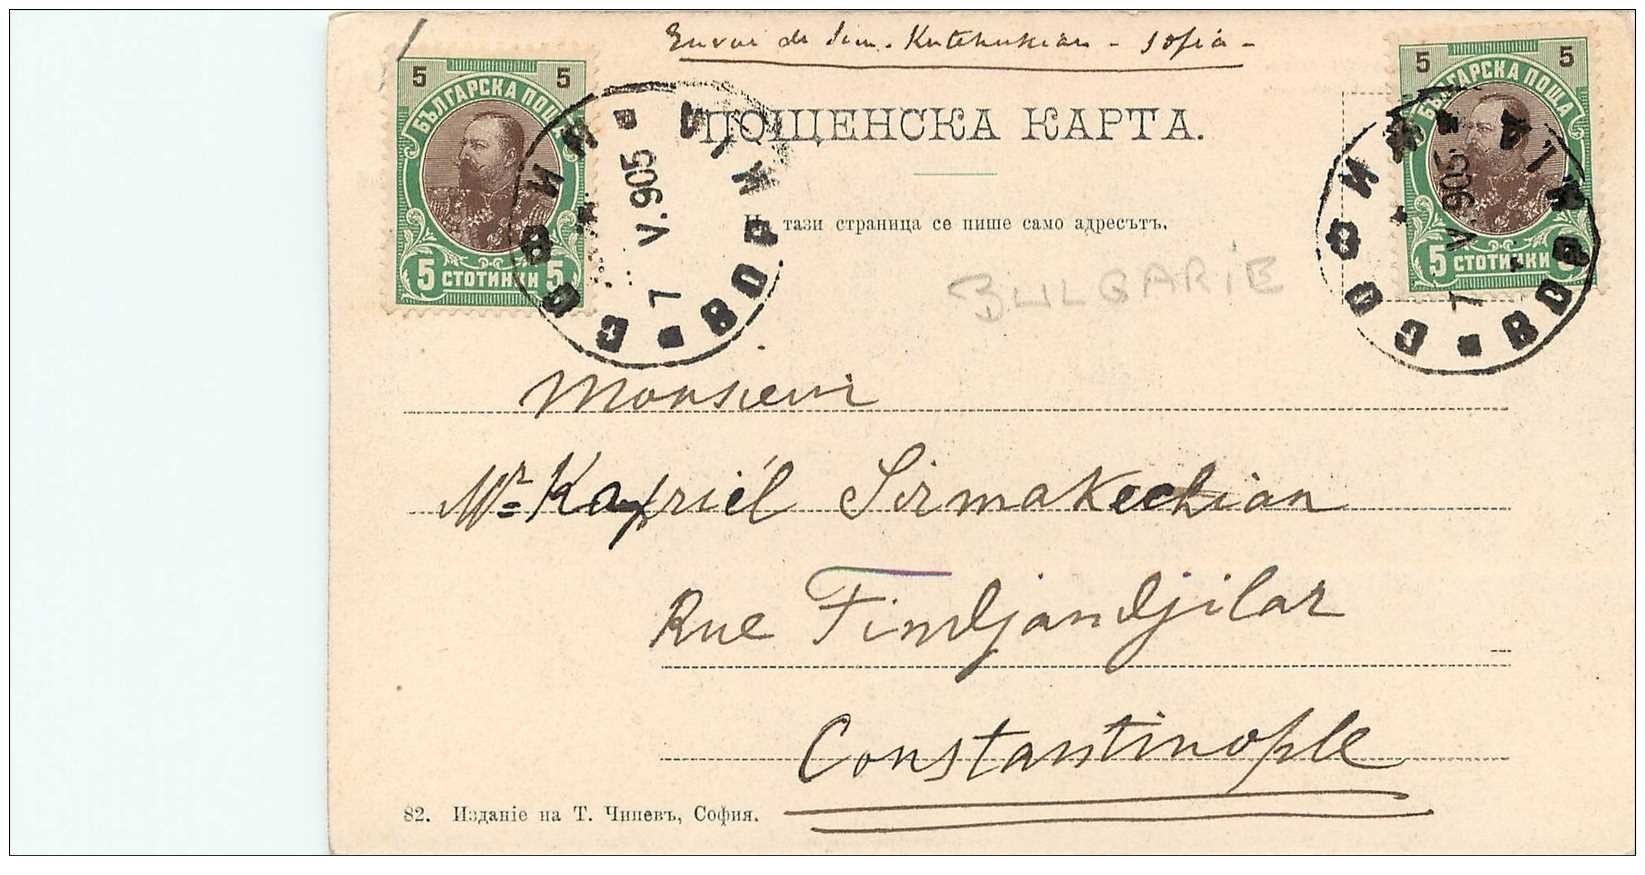 Envoi de Sim. Kutchukian - Sofia -
5 5
БЪЛГАРСКА ПОЩА
5 СТОТИНКИ 5
5 5
БЪЛГАРСКА ПОЩА
5 СТОТИНКИ
СОФИЯ
7 V.905
СОФИЯ
7 V.905
ПОЩЕНСКА КАРТА.
тази страница се пише само адресътъ.
BULGARIE
Monsieur
Mr Kapriél Sirmakechian
Rue Findjandjilar
Constantinople
82. Издание на Т. Чипевъ, София.